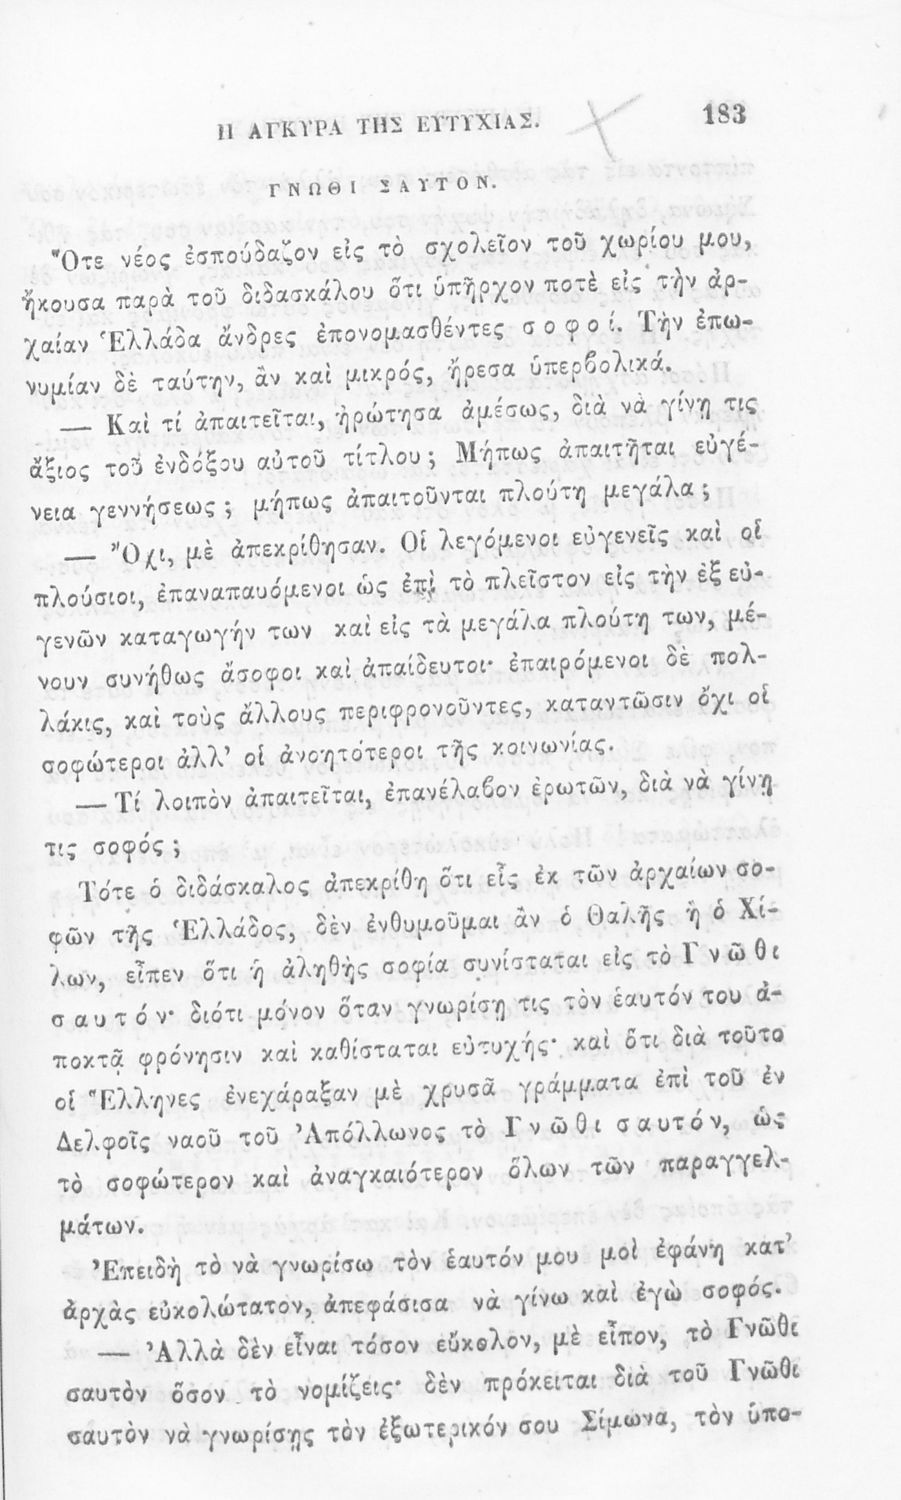 Η ΑΓΚΥΡΑ ΤΗΣ ΕΥΤΥΧΙΑΣ. 183
ΓΝΩΘΙ ΣΑΥΤΟΝ.
Ὅτε νέος ἐσπούδαζον εἰς τὸ σχολεῖον τοῦ χωρίου μου,
ἤκουσα παρὰ τοῦ διδασκάλου ὅτι ὑπῆρχον ποτὲ εἰς τὴν ἀρ-
χαίαν Ἑλλάδα ἄνδρες ἐπονομασθέντες σοφοί. Τὴν ἐπω-
νυμίαν δὲ ταύτην, ἂν καὶ μικρός, ἤρεσα ὑπερβολικά.
— Καὶ τί ἀπαιτεῖται, ἠρώτησα ἀμέσως, διὰ νὰ γίνῃ τις
ἄξιος τοῦ ἐνδόξου αὐτοῦ τίτλου; Μήπως ἀπαιτῆται εὐγέ-
νεια γεννήσεως; μήπως ἀπαιτοῦνται πλούτη μεγάλα;
— Ὄχι, μὲ ἀπεκρίθησαν. Οἱ λεγόμενοι εὐγενεῖς καὶ οἱ
πλούσιοι, ἐπαναπαυόμενοι ὡς ἐπὶ τὸ πλεῖστον εἰς τὴν ἐξ εὐ-
γενῶν καταγωγήν των καὶ εἰς τὰ μεγάλα πλούτη των, μέ-
νουν συνήθως ἄσοφοι καὶ ἀπαίδευτοι· ἐπαιρόμενοι δὲ πολ-
λάκις, καὶ τοὺς ἄλλους περιφρονοῦντες, καταντῶσιν ὄχι οἱ
σοφώτεροι ἀλλ' οἱ ἀνοητότεροι τῆς κοινωνίας.
— Τί λοιπὸν ἀπαιτεῖται, ἐπανέλαβον ἐρωτῶν, διὰ νὰ γίνῃ
τις σοφός;
Τότε ὁ διδάσκαλος ἀπεκρίθη ὅτι εἷς ἐκ τῶν ἀρχαίων σο-
φῶν τῆς Ἑλλάδος, δὲν ἐνθυμοῦμαι ἂν ὁ Θαλῆς ἢ ὁ Χί-
λων, εἶπεν ὅτι ἡ ἀληθὴς σοφία συνίσταται εἰς τὸ Γνῶθι
σαυτόν· διότι μόνον ὅταν γνωρίσῃ τις τὸν ἑαυτόν του ἀ-
ποκτᾷ φρόνησιν καὶ καθίσταται εὐτυχής· καὶ ὅτι διὰ τοῦτο
οἱ Ἕλληνες ἐνεχάραξαν μὲ χρυσᾶ γράμματα ἐπὶ τοῦ ἐν
Δελφοῖς ναοῦ τοῦ Ἀπόλλωνος τὸ Γνῶθι σαυτόν, ὡς
τὸ σοφώτερον καὶ ἀναγκαιότερον ὅλων τῶν παραγγελ-
μάτων.
Ἐπειδὴ τὸ νὰ γνωρίσω τὸν ἑαυτόν μου μοὶ ἐφάνη κατ'
ἀρχὰς εὐκολώτατον, ἀπεφάσισα νὰ γίνω καὶ ἐγὼ σοφός.
— Ἀλλὰ δὲν εἶναι τόσον εὔκολον, μὲ εἶπον, τὸ Γνῶθι
σαυτὸν ὅσον τὸ νομίζεις· δὲν πρόκειται διὰ τοῦ Γνῶθι
σαυτὸν νὰ γνωρίσῃς τὸν ἐξωτερικόν σου Σίμωνα, τὸν ὑπο-